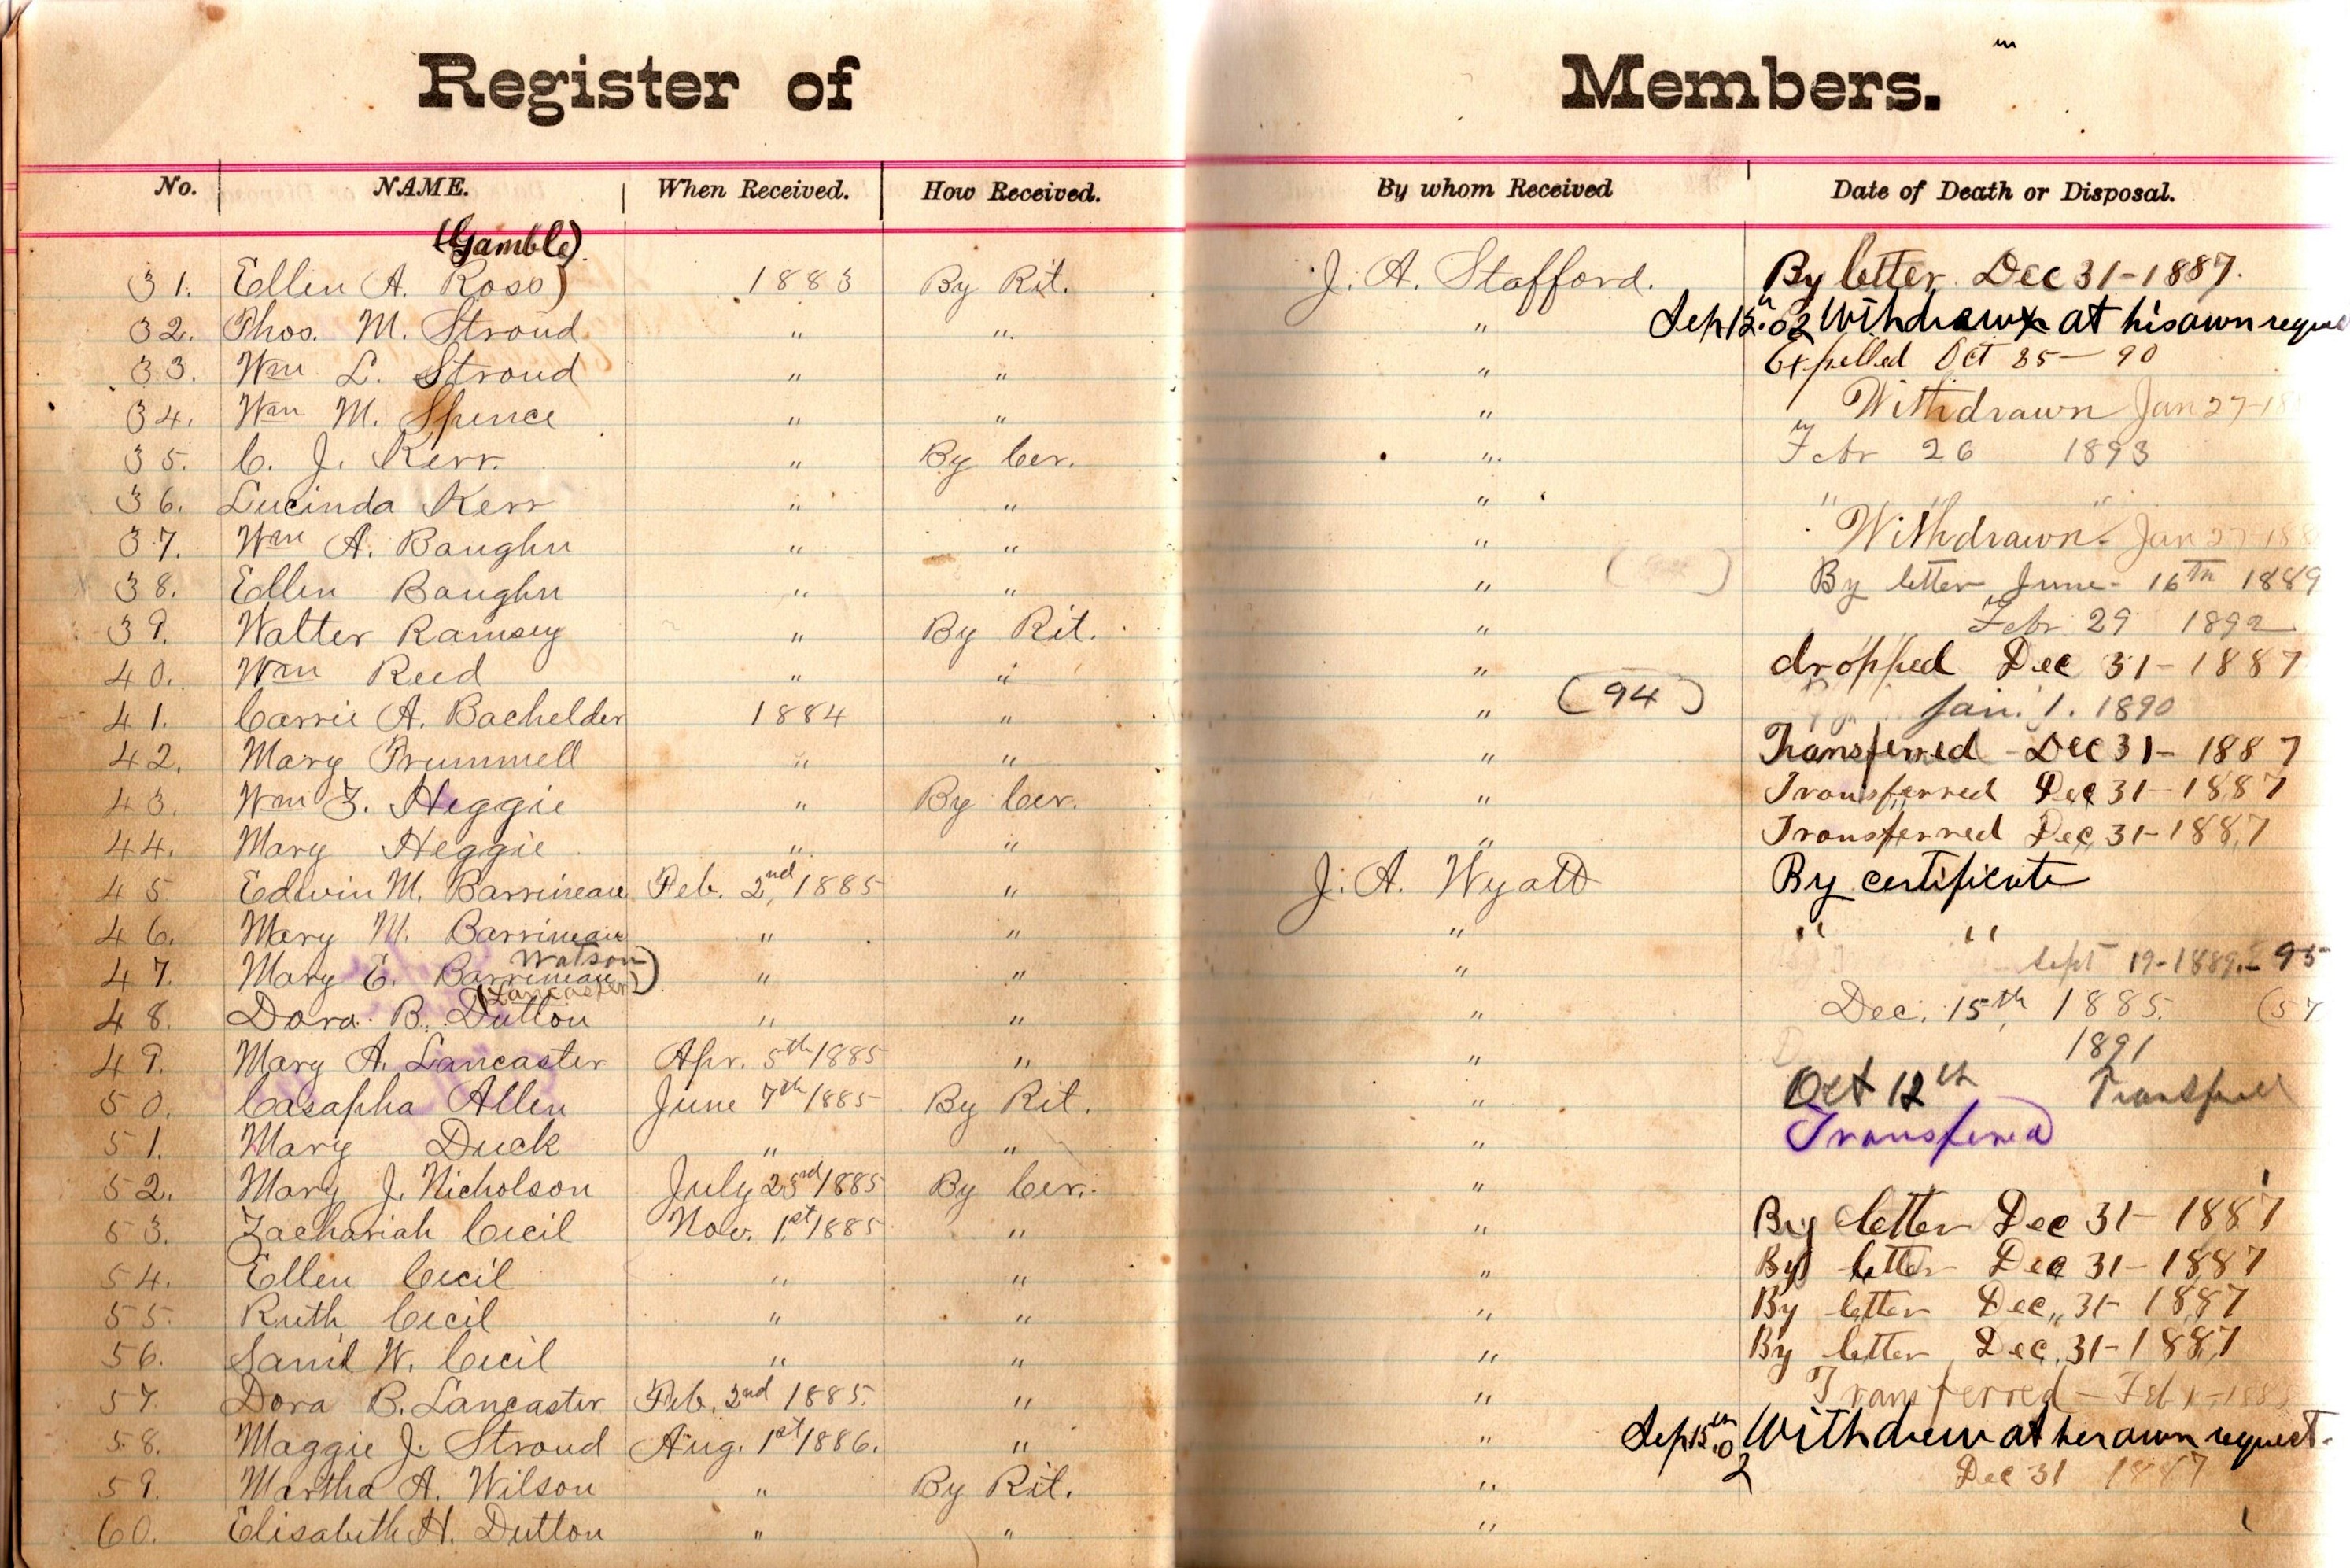 Register of Members.
No. NAME. When Received. How Received. By whom Received Date of Death or Disposal.
(Gamble)
31. Ellen A. Ross) 1883 By Rit. J. A. Stafford. By letter Dec 31-1887.
32. Thos. M. Stroud " " " Sep 15th 02 Withdrawn at his own reque
33. Wm L. Stroud " " " Expelled Oct 85-90
34. Wm M. Spence " " " Withdrawn Jan 27-18
35. C. J. Kerr. " By Cer. " Febr 26 1893
36. Lucinda Kerr " " " " " "
37. Wm A. Baughn " " " Withdrawn. Jan 27-188
38. Ellen Baughn " " " By letter June 16th 1889
39. Walter Ramsey " By Rit. " Febr 29 1892
40. Wm Reed " " " dropped Dec 31-1887
41. Carrie A. Bachelder 1884 " " (94) Jan. 1. 1890
42. Mary Trummell " " " Transferred - Dec 31-1887
43. Wm F. Heggie " By Cer. " Transferred Dec 31-1887
44. Mary Heggie " " " Transferred Dec 31-1887
45 Edwin M. Barrineau Feb. 2nd, 1885 " J. A. Wyatt By certificate
46. Mary M. Barrineau " " " " "
Watson
47. Mary E. Barrineau) " " " Sept 19-1889.-95
(Lancaster)
48. Dora B. Dutton " " " Dec. 15th, 1885. (57
49. Mary A. Lancaster Apr. 5th 1885 " " 1891
50. Casapha Allen June 7th 1885 By Rit. " Oct 12th Transfered
51. Mary Duck " " " Transfered
52. Mary J. Nicholson July 23rd 1885 By Cer. "
53. Zachariah Cecil Nov. 1st 1885 " " By letter Dec 31-1887
54. Ellen Cecil " " " By letter Dec 31-1887
55. Ruth Cecil " " " By letter Dec, 31-1887
56. Saml W. Cecil " " " By letter Dec, 31-1887
57. Dora B. Lancaster Feb. 2nd 1885. " " Transferred - Feb
58. Maggie J. Stroud Aug. 1st 1886. " " Sep 15th 02 Withdrew at her own request.
59. Martha A. Wilson " By Rit. " Dec 31 1887
60. Elisabeth H. Dutton " " "